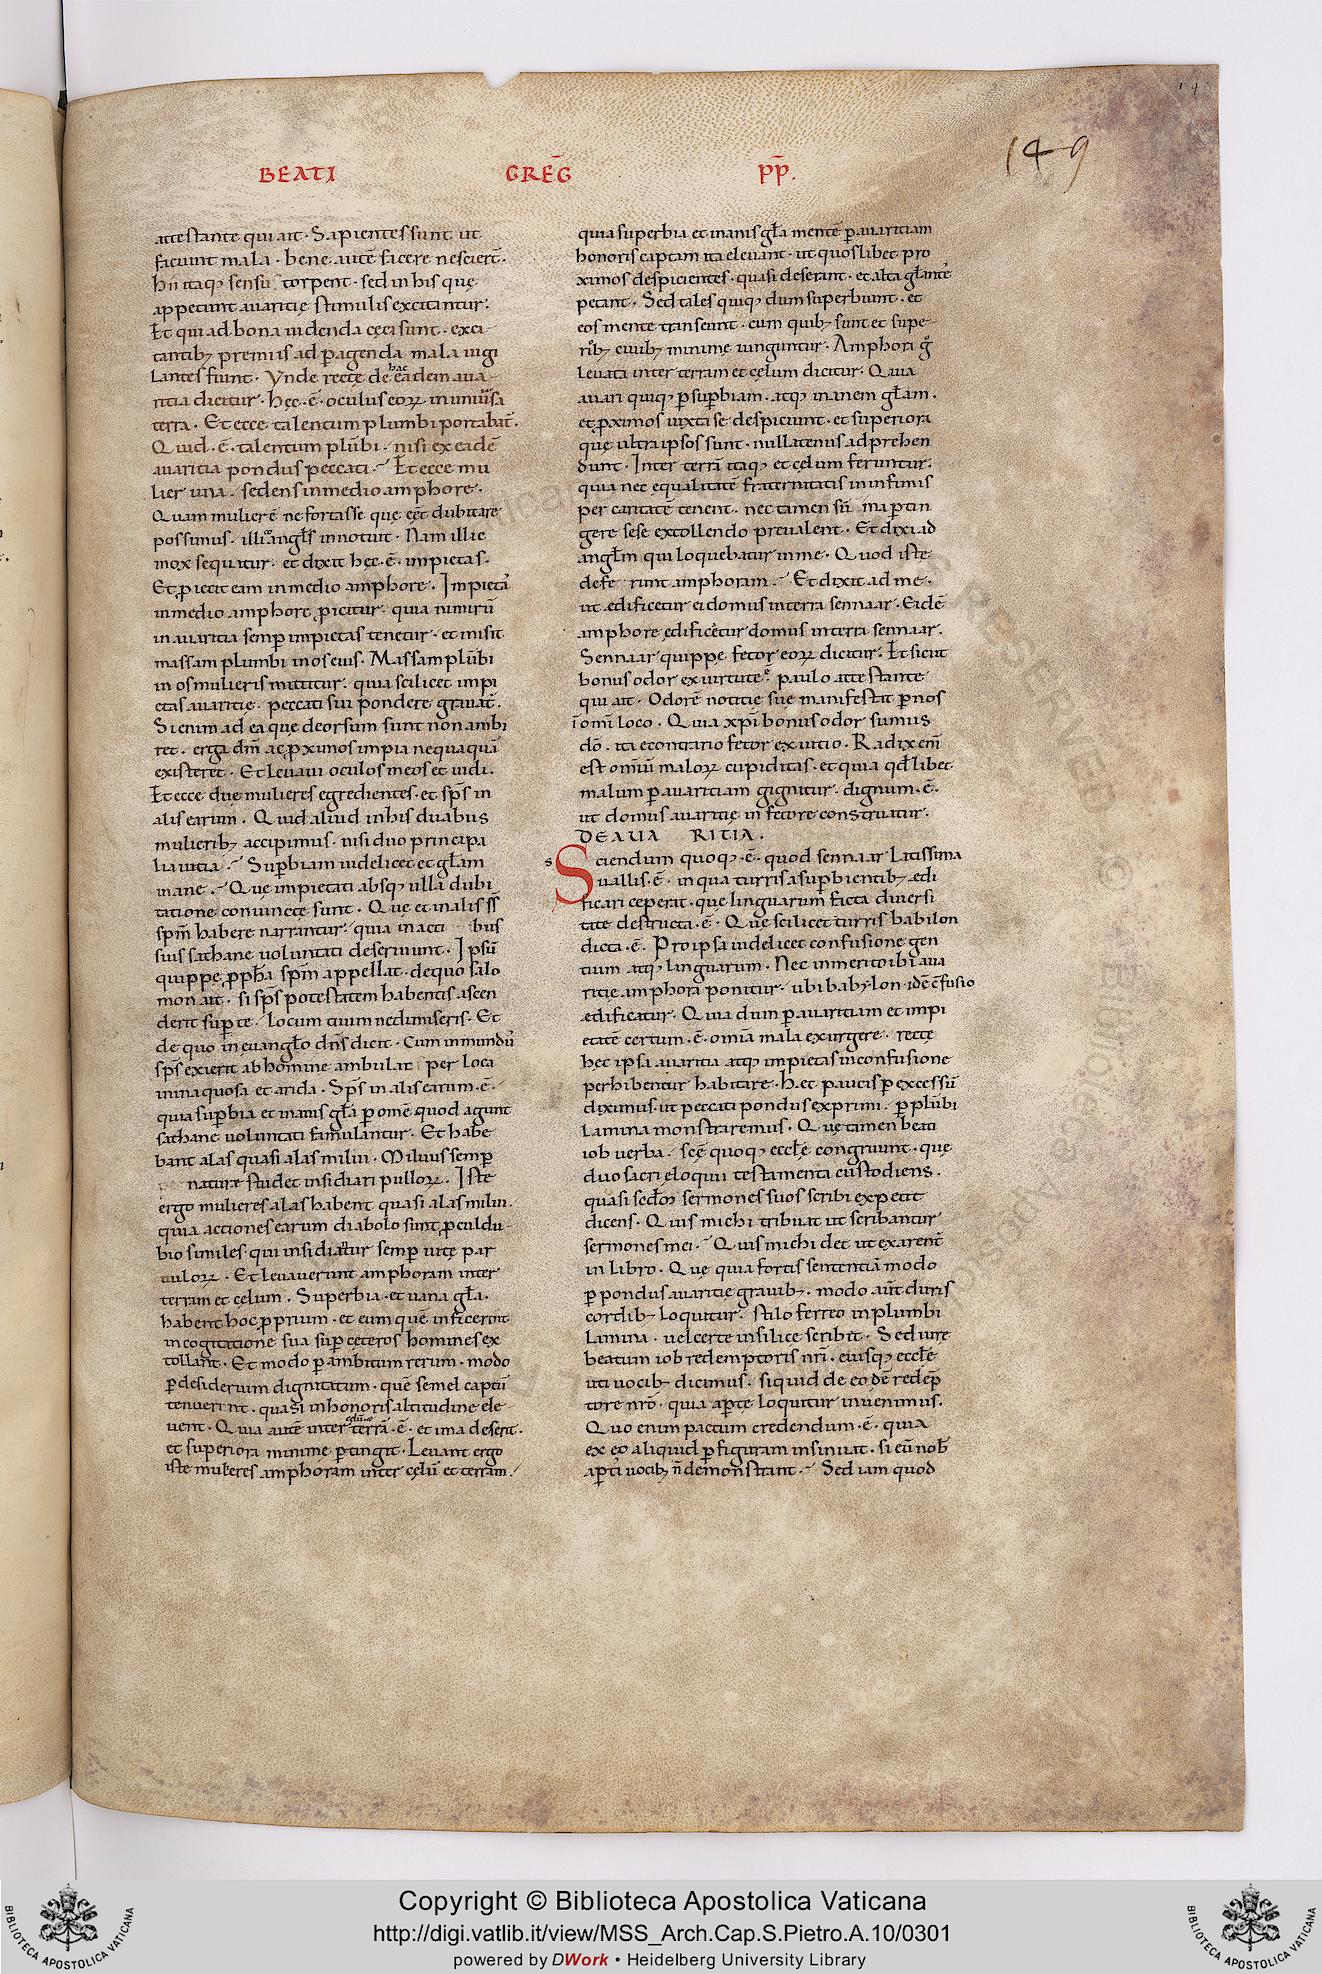 BEATI GREḠ PP̄.
149
attestante qui ait. Sapientes sunt ut
faciunt mala. bene autē facere nesciert̄.
hii itaq; sensu torpent. sed in his quę
appetunt auaritię stimulis excitantur.
Et qui ad bona uidenda cęci sunt. exci
tantib; premiis ad p̄agenda mala uigi
lantes fiunt. Vnde recte de hac eadem aua
ritia dicitur. hęc. ē. oculus eoꝝ in uniu͛sa
terra. Et ecce talentum plumbi portabat̄.
Quid. ē. talentum plūbi. nisi ex eadē
auaritia pondus peccati. Et ecce mu
lier una. sedens in medio amphore.
Quam mulierē ne fortasse que eēt dubitare
possimus. illico angl̄s innotuit. Nam illic
mox sequitur. et dixit hęc. ē. impietas.
Et ꝓiecit eam in medio amphore. Impieta᷒
in medio amphore ꝓicitur. quia nimirū
in auaritia semp̄ impietas tenetur. et misit
massam plumbi in os eius. Massam plūbi
in os mulieris mittitur. quia scilicet impi
etas auaritie. peccati sui pondere grauat̄.
Si enim ad ea que deorsum sunt non ambi
ret. erga dm̄ ac ꝓximos impia nequaquā
existeret. Et leuaui oculos meos et uidi.
Et ecce due mulieres egredientes. et sp̄s in
alis earum. Quid aliud in his duabus
mulierib; accipimus. nisi duo principa
lia uitia. Supbiam uidelicet et gl̄am
inane. Quę impietati absq; ulla dubi
tatione coniuncte sunt. Que et in alis ss̄
sp̄m habere narrantur. quia in acti bus
suis sathane uoluntati deseruiunt. Ipsū
quippe ꝓph̄a sp̄m appellat. de quo salo
mon ait. si sp̄s potestatem habentis ascen
derit sup̄ te. locum tuum ne dimiseris. Et
de quo in euangl̄o dn̄s dicit. Cum inmundu᷒
sp̄s exierit ab homine ambulat per loca
inina quosa et arida. Sp̄s in alis earum. ē.
quia sup̄bia et inanis gl̄a p̄ omē quod agunt
sathane uoluntati famulantur. Et habe
bant alas quasi alas milui. Miluus semp̄
naturæ studet insidiari pulloꝝ. Iste
ergo mulieres alas habent quasi alas milui.
quia actiones earum diabolo sunt ꝓculdu
bio similes qui insidiatur semp̄ uitę par
uuloꝝ. Et leuauerunt amphoram inter
terram et celum. Superbia. et uana gl̄a.
habent hoc ꝓprium. et eum quē infecerint
in cogitatione sua sup̄ cęteros homines ex
tollant. Et modo p̄ ambitum rerum. modo
p̄ desiderium dignitatum. quē semel captū
tenuerint. quasi in honoris altitudine ele
uent. Quia autē inter celū et terrā. ē. et ima deserit.
et superiora minime p̄tingit. Leuant ergo
iste mulieres amphoram inter cęlū et terram.
quia superbia et inanis gl̄a mentē p̄ auaritiam
honoris captam ita eleuant. ut quoslibet pro
ximos despicientes. quasi deserant. et alta gl̄antes
petant. Sed tales quiq; dum superbiunt. et
eos mente transeunt. cum quib; sunt et supe
riorib; ciuib; minime iunguntur. Amphora g̊
leuata inter terram et cęlum dicitur. Quia
auari quiq; p̄ sup̄biam. atq; inanem gl̄am.
et ꝓximos iuxta se despiciunt. et superiora
que ultra ipsos sunt. nullatenus adprehen
dunt. Inter terrā itaq; et cęlum feruntur.
quia nec equalitatē fraternitatis in infimis
per caritatē tenent. nec tamen sūma p̄tin
gere sese extollendo preualent. Et dixi ad
angl̄m qui loquebatur in me. Quod iste
defe runt amphoram. Et dixit ad me.
ut edificetur ei domus in terra sennaar. Eidē
amphore edificetur domus in terra sennaar.
Sennaar quippe fetor eoꝝ dicitur. Et sicut
bonus odor ex uirtute ē paulo attestante
qui ait. Odorē notitie suę manifestat p̄ nos
in omī loco. Quia xp̄i bonus odor sumus
dō. ita econtrario fetor ex uitio. Radix enī
est omiū maloꝝ cupiditas. et quia qđ libet
malum p̄ auaritiam gignitur. dignum. ē.
ut domus auaritię in fetore construatur.
DE AVA RITIA.
s Sciendum quoq;. ē. quod sennaar latissima
uallis. ē. in qua turris a sup̄bientib; ędi
ficari ceperat. que linguarum facta diuersi
tate destructa. ē. Que scilicet turris babilon
dicta. ē. Pro ipsa uidelicet confusione gen
tium atq; linguarum. Nec inmerito ibi aua
ritię amphora ponitur. ubi babylon. idē c̄fusio
edificatur. Quia dum p̄ auaritiam et impi
etatē certum. ē. omnia mala exurgere. recte
hęc ipsa auaritia atq; impietas in confusione
perhibentur habitare. Hęc paucis p̄ excessū
diximus. ut peccati pondus exprimi. p̄ plūbi
lamina monstraremus. Quę tamen beati
iob uerba. scē quoq; eccl̄ę congruunt. quę
duo sacri eloquii testamenta custodiens.
quasi scđo sermones suos scribi expetit
dicens. Quis michi tribuat ut scribantur
sermones mei. Quis michi det ut exarent̄
in libro. Quę quia fortis sententiā modo
p̄ pondus auaritię grauib;. modo aūt duris
cordib; loquitur. stilo ferreo in plumbi
lamina. uel certe in silice scribit. Sed iure
beatum iob redemptoris nr̄i. eiusq; eccl̄ę
uti uocib; dicimus. si quid de eodē redēp
tore nr̄o. quia ap̄te loquitur inuenimus.
Quo enim pactum credendum. ē. quia
ex eo aliquid p̄ figuram insinuat. si eū nob̄
ap̄ti uocib; n̄ demonstrant. Sed iam quod
Copyright © Biblioteca Apostolica Vaticana
http://digi.vatlib.it/view/MSS_Arch.Cap.S.Pietro.A.10/0301
powered by DWork • Heidelberg University Library
BIBLIOTECA APOSTOLICA VATICANA
BIBLIOTECA APOSTOLICA VATICANA